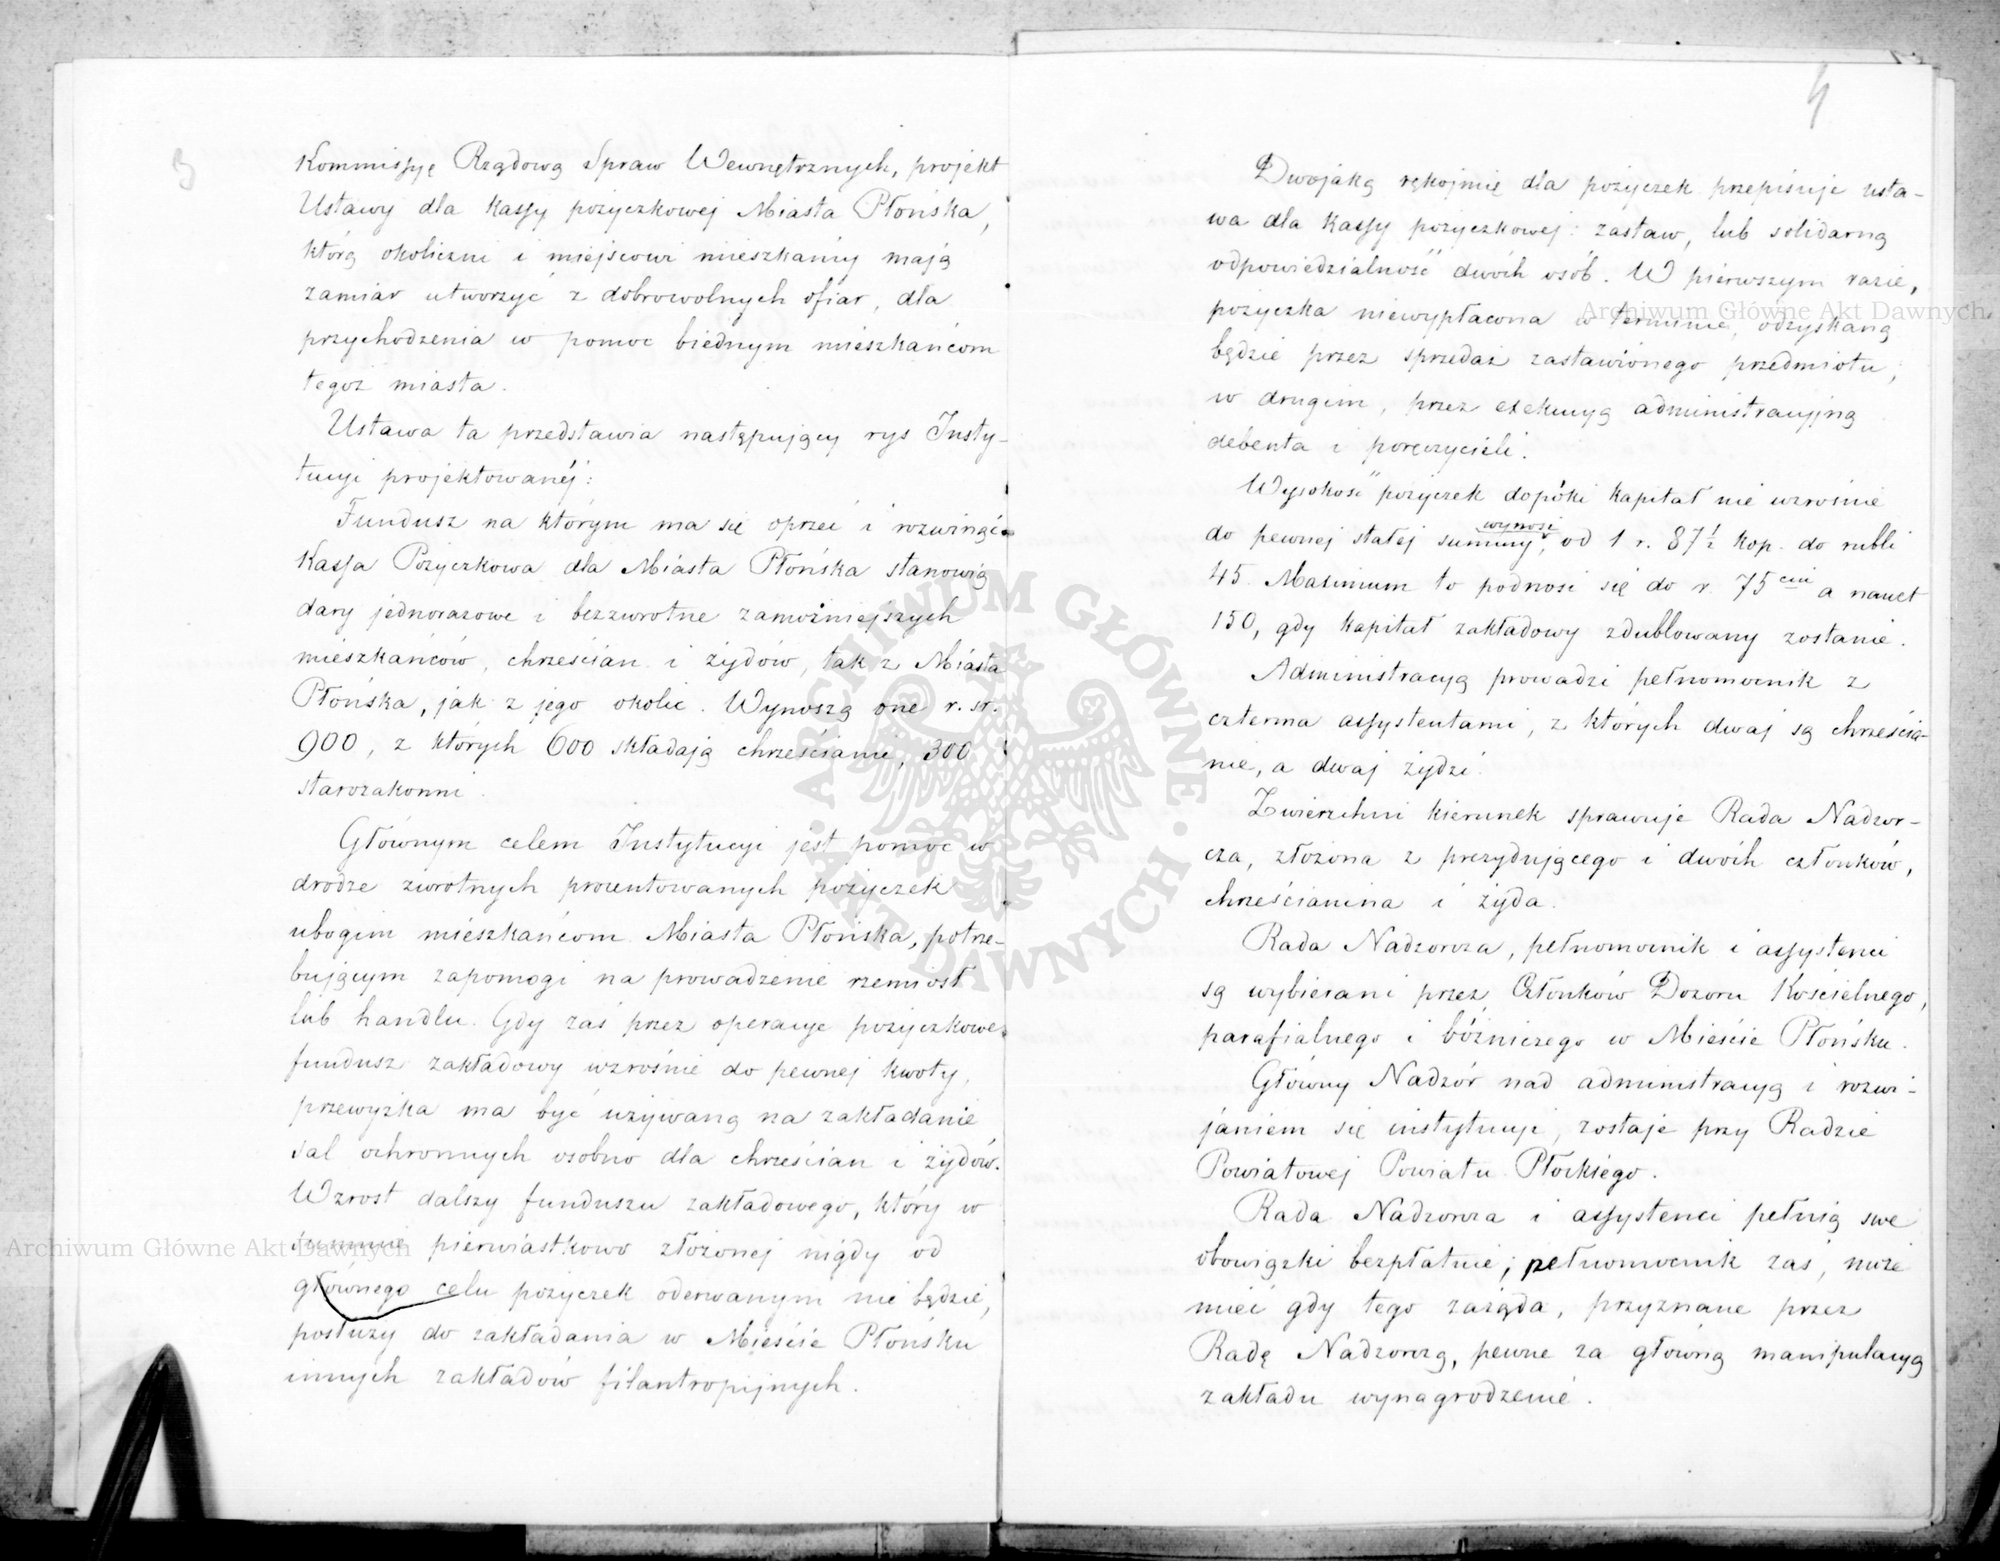 3
Kommissyę Rządową Spraw Wewnętrznych, projekt
Ustawy dla Kassy pożyczkowej Miasta Płońska,
którą okoliczni i miejscowi mieszkańcy mają
zamiar utworzyć z dobrowolnych ofiar, dla
przychodzenia w pomoc biednym mieszkańcom
tegoż miasta.
Ustawa ta przedstawia następujący rys Insty-
tucyi projektowanéj:
Fundusz na którym ma się oprzeć i rozwinąć
Kassa Pożyczkowa dla Miasta Płońska stanowią
dary jednorazowe i bezzwrotne zamożniejszych
mieszkańców, chrześcian i żydów, tak z Miasta
Płońska, jak z jego okolic. Wynoszą one r. sr.
900, z których 600 składają chrześcianie, 300
starozakonni.
Głównym celem Instytucyi jest pomoc w
drodze zwrotnych procentowanych pożyczek
ubogim mieszkańcom Miasta Płońska, potrze-
bującym zapomogi na prowadzenie rzemiosł
lub handlu. Gdy zaś przez operacye pożyczkowe
fundusz zakładowy wzrośnie do pewnej kwoty,
przewyżka ma być używaną na zakładanie
sal ochronnych osobno dla chrześcian i żydów.
Wzrost dalszy funduszu zakładowego, który w
summie pierwiastkowo złożonej nigdy od
głównego celu pożyczek oderwanym nie będzie,
posłuży do zakładania w Mieście Płońsku
innych zakładów filantropijnych.
4
Dwojaką rękojmię dla pożyczek przepisuje usta-
wa dla Kassy pożyczkowej: zastaw, lub solidarną
odpowiedzialność dwóch osób. W pierwszym razie,
pożyczka niewypłacona w terminie, odzyskaną
będzie przez sprzedaż zastawionego przedmiotu,
w drugim, przez exekucyą administracyjną
debenta i poręczycieli.
Wysokość pożyczek dopóki kapitał nie wzrośnie
do pewnej stałej summy, wynosi od 1 r. 87½ kop. do rubli
45. Maximum to podnosi się do r. 75ciu a nawet
150, gdy kapitał zakładowy zdublowany zostanie.
Administracyą prowadzi pełnomocnik z
czterma assystentami, z których dwaj są chrześcia-
nie, a dwaj żydzi.
Zwierzchni kierunek sprawuje Rada Nadzor-
cza, złożona z prezydującego i dwóch członków,
chrześcianina i żyda.
Rada Nadzorcza, pełnomocnik i assystenci
są wybierani przez Członków Dozoru Kościelnego,
parafialnego i bóżniczego w Mieście Płońsku.
Główny Nadzór nad administracyą i rozwi-
janiem się instytucyi, zostaje przy Radzie
Powiatowej Powiatu Płockiego.
Rada Nadzorcza i assystenci pełnią swe
obowiązki bezpłatnie; pełnomocnik zaś, może
mieć gdy tego zażąda, przyznane przez
Radę Nadzorczą, pewne za główną manipulacyą
zakładu wynagrodzenie.
Archiwum Główne Akt Dawnych
Archiwum Główne Akt Dawnych
ARCHIWUM GŁÓWNE · AKT DAWNYCH ·